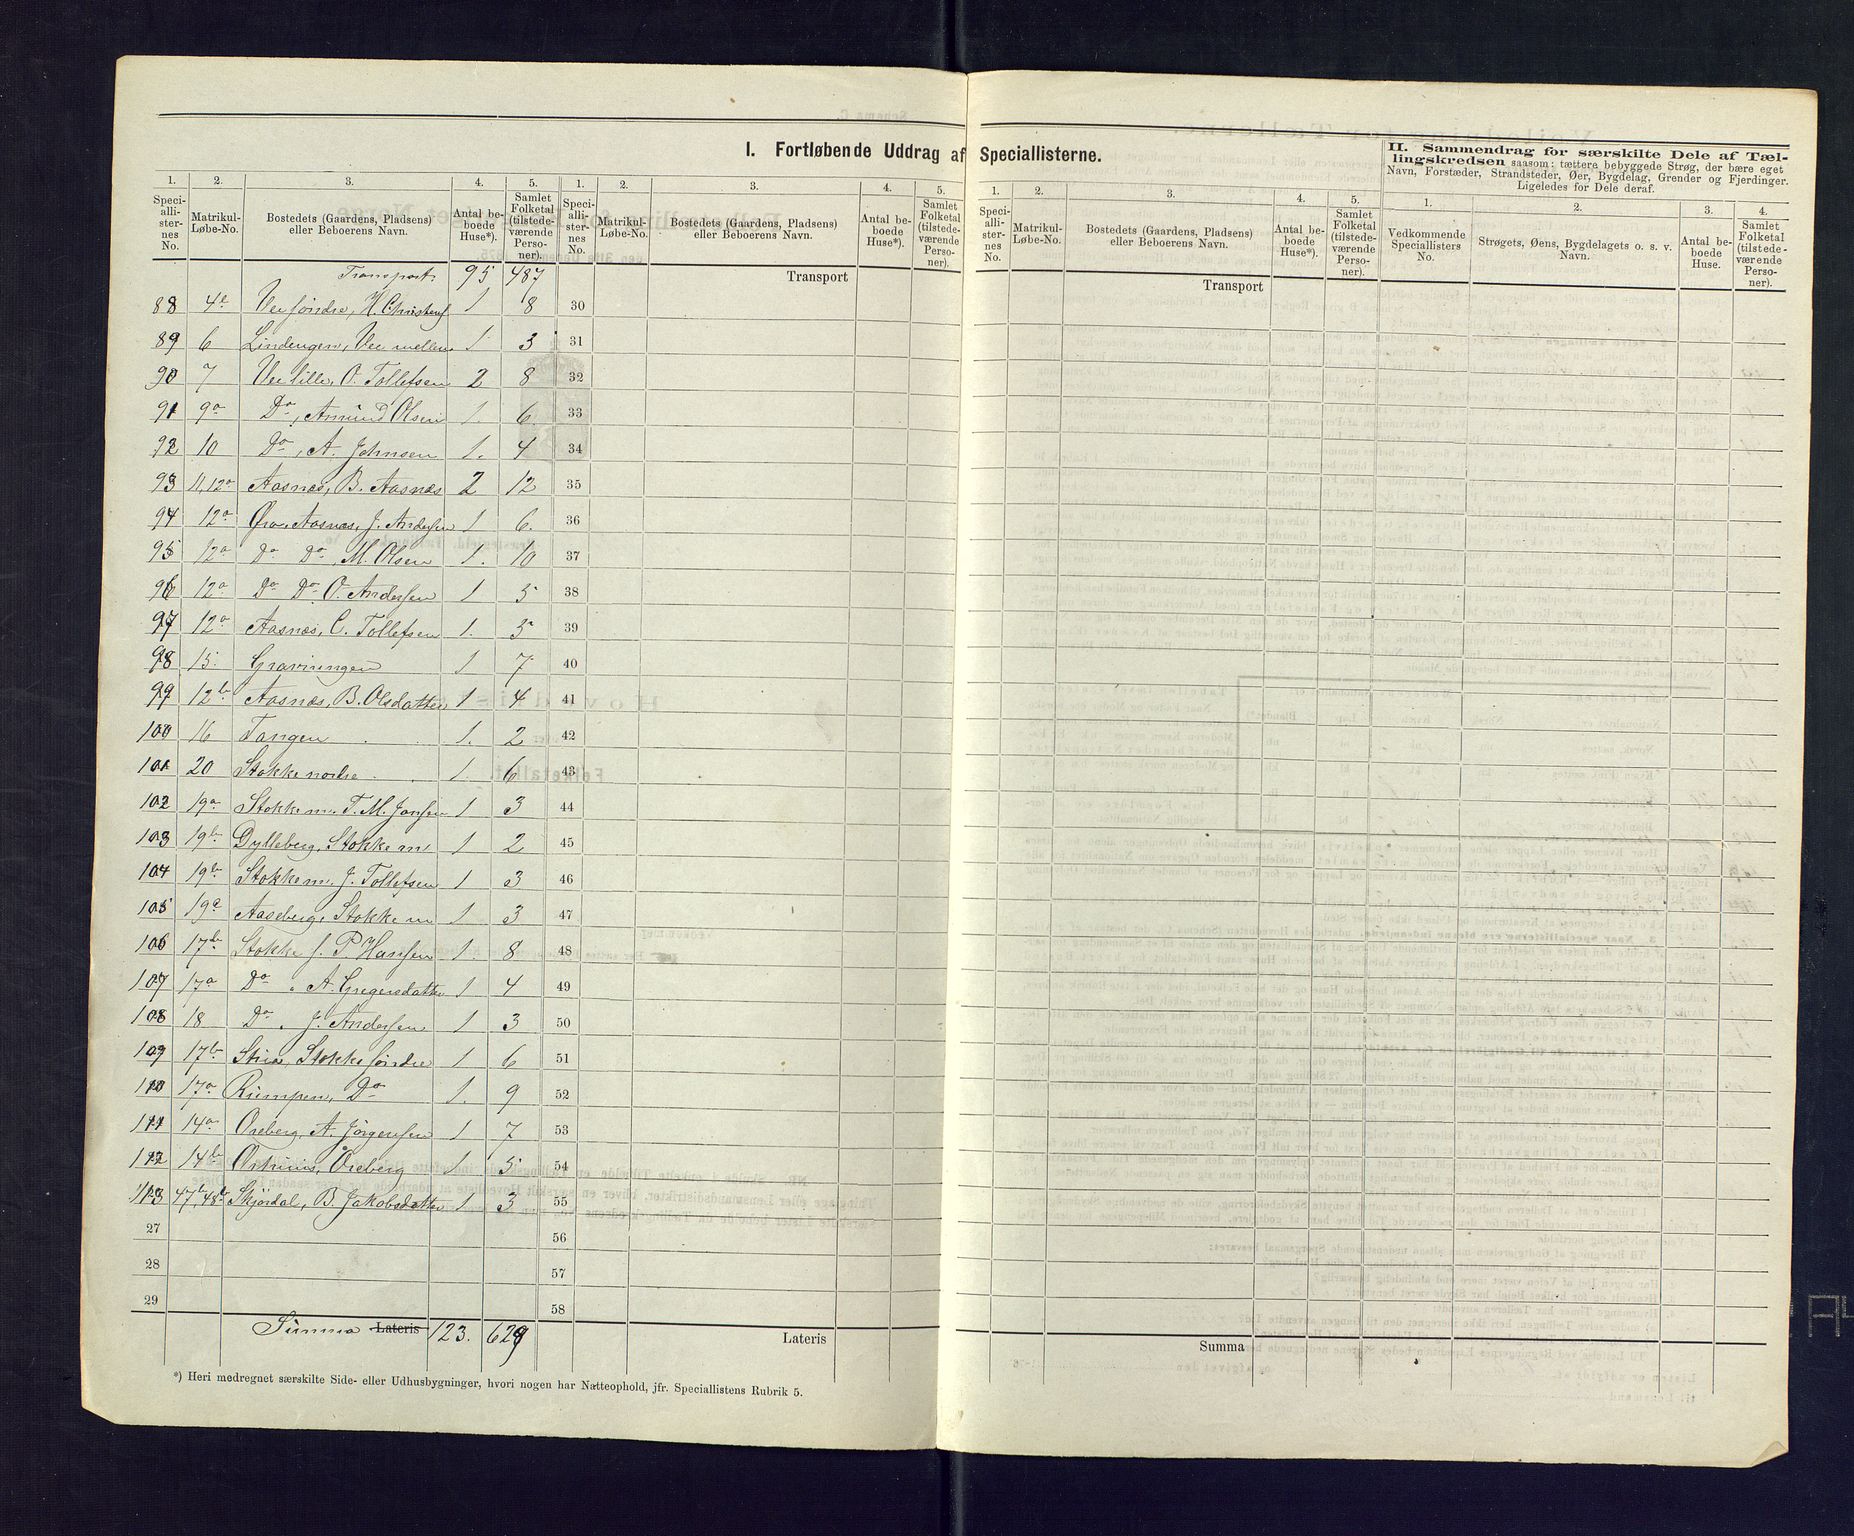 I. Fortløbende Uddrag af Speciallisterne.
II. Sammendrag for særskilte Dele af Tæl-
lingskredsen saasom: tættere bebyggede Strøg, der bære eget
Navn, Forstæder, Strandsteder, Øer, Bygdelag, Grender og Fjerdinger.
Ligeledes for Dele deraf.
1. 2. 3. 4. 5. 1. 2. 3. 4. 5.
Speci-allister-nes No. Matrikul-Løbe-No. Bostedets (Gaardens, Pladsens) eller Beboerens Navn. Antal be-boede Huse*). Samlet Folketal (tilstede-værende Perso-ner).
Speci-allister-nes No. Matrikul-Løbe-No. Bostedets (Gaardens, Pladsens) eller Beboerens Navn. Antal be-boede Huse*). Samlet Folketal (tilstede-værende Perso-ner).
1. 2. 3. 4. 5. 1. 2. 3. 4.
Speci-allister-nes No. Matrikul-Løbe-No. Bostedets (Gaardens, Pladsens) eller Beboerens Navn. Antal be-boede Huse*). Samlet Folketal (tilstede-værende Perso-ner).
Vedkommende Speciallisters No. Strøgets, Øens, Bygdelagets o. s. v. Navn. Antal be-boede Huse. Samlet Folketal (tilstede-værende Perso-ner).
Transport 95 487 Transport Transport
88 4e Vee søndre, H. Christens 1 8 30
89 6 Lindengen, Vee mellem 1 3 31
90 7 Vee lille, O. Tollefsen 2 8 32
91 9a Do, Amund Olsen 1. 6. 33
92 10 Do, A. Johnsen 1. 4 34
93 11, 12a Aasnæs, B. Aasnæs 2 12 35
94 12a Øra, Aasnæs, J. Andersen 1 6. 36
95 12a Do Do, M. Olsen 1. 10 37
96 12a Do Do O. Andersen 1 5 38
97 12a Aasnæs, C. Tollefsen 1. 5 39
98 15 Gravningen 1 7 40
99 12b Aasnæs, B. Olsdatter 1 4 41
100 16 Tangen 1. 2 42
101 20 Stokke nordre 1. 6 43
102 19a Stokke m. T. M. Jansen 1 3 44
103 19b Dylleberg, Stokke m 1 2 45
104 19b Stokke m, J. Tollefsen 1 3 46
105 19a Aaseberg, Stokke m 1 3 47
106 17b Stokke s. P Hansen 1 8 48
107 17a Do, A. Gregersdatter 1 4 49
108 18 Do, J. Andersen 1 3 50
109 17b Stua, Stokke søndre 1 6 51
110 17a Rumpen, Do 1. 9 52
111 14a Oreberg, A. Jørgensen 1 7 53
112 14b Oreberg 1 5 54
113 47b, 48b Skjørdal, B. Jakobsdatter 1 3 55
27 56
28 57
29 58
Summa Lateris 123. 629 Lateris Summa
*) Heri medregnet særskilte Side- eller Udhusbygninger, hvori nogen har Natteophold, jfr. Speciallistens Rubrik 5.